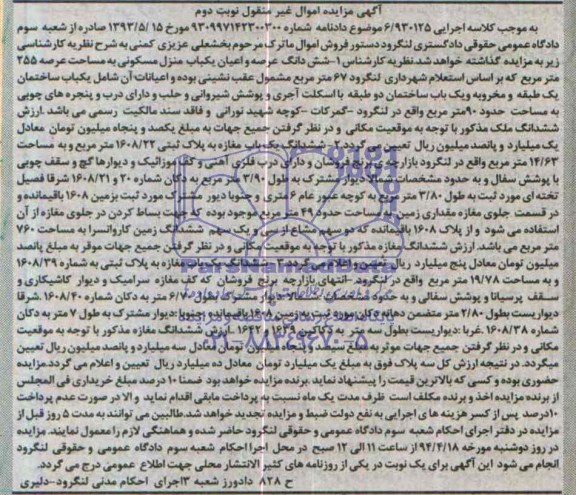 آگهی مزایده اموال غیر منقول نوبت دوم
به موجب کلاسه اجرایی ۶/۹۳۰۱۲۵ موضوع دادنامه شماره ۹۳۰۹۹۷۱۴۲۳۰۰۳۰۰ مورخ ۱۳۹۳/۵/۱۵ صادره از شعبه سوم
دادگاه عمومی حقوقی دادگستری لنگرود دستور فروش اموال ماترک مرحوم بخشعلی عزیزی کمنی به شرح نظریه کارشناسی
زیر به مزایده گذاشته خواهد شد.نظریه کارشناس ۱-شش دانگ عرصه و اعیان یکباب منزل مسکونی به مساحت عرصه ۲۵۵
متر مربع که بر اساس استعلام شهرداری لنگرود ۶۷ متر مربع مشمول عقب نشینی بوده و اعیانات آن شامل یکباب ساختمان
یک طبقه و مخروبه و یک باب ساختمان دو طبقه با اسکلت آجری و پوشش شیروانی و حلب و دارای درب و پنجره های چوبی
به مساحت حدود ۹۰متر مربع واقع در لنگرود -گمرکات -کوچه شهید نورانی و فاقد سند مالکیت رسمی می باشد.ارزش
ششدانگ ملک مذکور با توجه به موقعیت مکانی و در نظر گرفتن جمیع جهات به مبلغ یکصد و پنجاه میلیون تومان معادل
یک میلیارد و پانصد میلیون ریال تعیین می گردد.۲- ششدانگ یک باب مغازه به پلاک ثبتی ۱۶۰۸/۲۲ متر مربع و به مساحت
۱۴/۶۳ متر مربع واقع در لنگرود بازارچه ی برنج فروشان و دارای درب فلزی آهنی و کف موزائیک و دیوارها گچ و سقف چوبی
با پوشش سفال و به حدود مشخصات شمالا دیوار مشترک به طول ۳/۹۰ متر مربع به دکان شماره ۲۰ و ۱۶۰۸/۲۱ شرقا فصیل
تخته ای مورد ثبت به طول ۳/۸۰ متر مربع به کوچه عبور عام ۶ متری و جنوبا دیور مشترک مورد ثبت بزمین ۱۶۰۸ باقیمانده و
در قسمت جلوی مغازه مقداری زمین به مساحت حدود ۴۹ متر مربع موجود بوده که جهت بساط کردن در جلوی مغازه از آن
استفاده می شود و از پلاک ۱۶۰۸ باقیمانده که دو سهم مشاع از سی و یک سهم ششدانگ زمین کاروانسرا به مساحت ۷۶۰
متر مربع می باشد. ارزش ششدانگ مغازه مذکور با توجه به موقعیت مکانی و در نظر گرفتن جمیع جهات موقر به مبلغ پانصد
میلیون تومان معادل پنج میلیارد ریال تعیین و اعلام می گردد.۳-ششدانگ یک باب مغازه به پلاک ثبتی به شماره ۱۶۰۸/۳۹
و به مساحت ۱۹/۷۸ متر مربع واقع در لنگرود -انتهای بازارچه برنج فروشان که کف مغازه سرامیک و دیوار کاشیکاری و
سقف پرسپانا و پوشش سفالی و به حدود مشخصات شمالا دیوار مشترک بطول ۶/۷۰ متر به دکان شماره ۱۶۰۸/۴۰ .شرقا
دیواریست بطول ۲/۸۰ متر متضمن دهانه دکان مورد ثبت به زمین ۱۶۰۸ باقیمانده و جنوبا :دیوار مشترک به طول ۷ متر به دکان
شماره ۱۶۰۸/۳۸ .غربا :دیواریست بطول سه متر به دکاکین ۱۶۳۹ و ۱۶۴۲ .ارزش ششدانگ مغازه مذکور با توجه به موقعیت
مکانی و در نظر گرفتن جمیع جهات موثر به مبلغ سیصد و پنجاه میلیون تومان معادل سه میلیارد و پانصد میلیون ریال تعیین
میگردد.در نتیجه ارزش کل سه پلاک فوق به مبلغ یک میلیارد تومان معادل ده میلیارد ریال تعیین و اعلام می گردد.مزایده
حضوری بوده و کسی که بالاترین قیمت را پیشنهاد نماید برنده مزایده خواهد بود ضمنا ۱۰ درصد مبلغ خریداری فی المجلس
از برنده مزایده اخذ و برنده مکلف است ظرف مدت یک ماه نسبت به پرداخت مابقی اقدام نماید و الا در صورت عدم پرداخت
۱۰درصد پس از کسر هزینه های اجرایی به نفع دولت ضبط و مزایده تجدید خواهد شد.طالبین می توانند به مدت ۵ روز قبل از
مزایده در دفتر اجرای احکام شعبه سوم دادگاه عمومی و حقوقی لنگرود حاضر شده و هماهنگی لازم را معمول نمایند. مزایده
در روز دوشنبه مورخه ۹۴/۴/۱۸ از ساعت ۱۱ الی ۱۲ صبح در محل اجرا احکام شعبه سوم دادگاه عمومی و حقوقی لنگرود
انجام می شود این آگهی برای یک نوبت در یکی از روزنامه های کثیر الانتشار محلی جهت اطلاع عمومی درج می گردد.
ح ۸۲۸ دادورز شعبه ۳اجرای احکام مدنی لنگرود-دلیری
ParsNamadData
۰۲۱-۸۸۳۴۹۶۷۰-۵